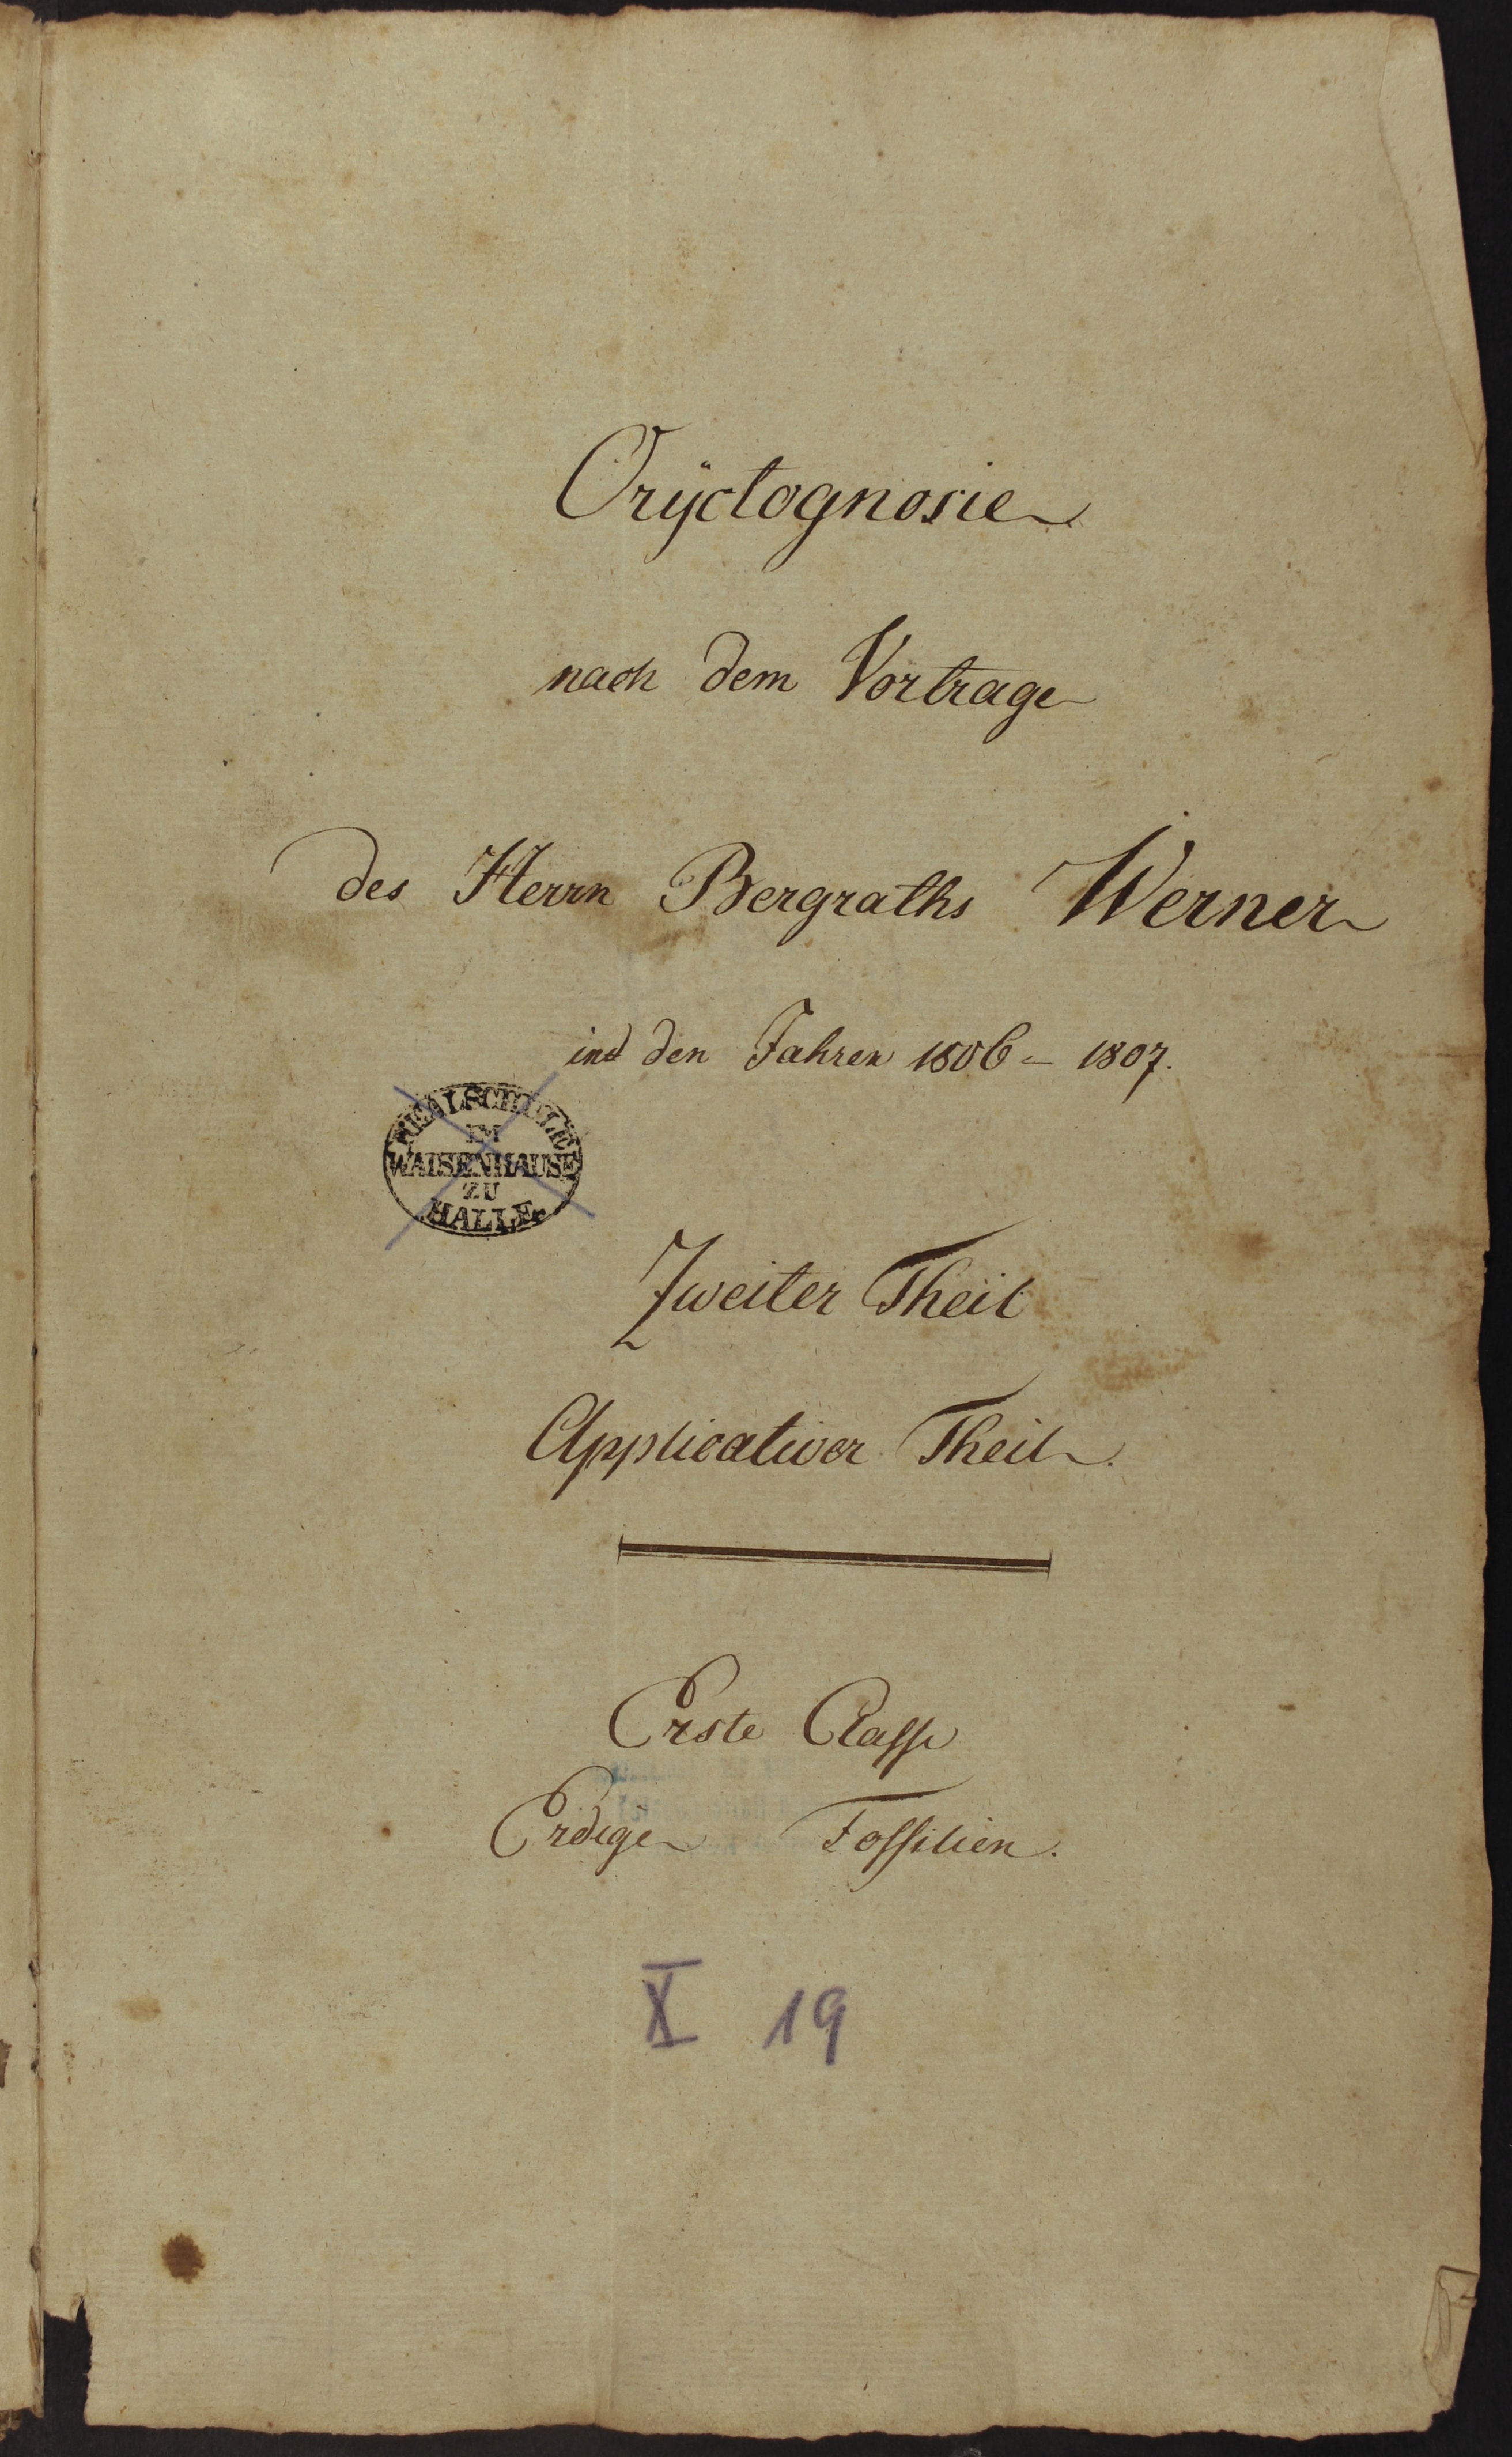 Orÿctognosie
nach dem Vortrage
des Herrn Bergraths Werner
in den Jahren 1806 – 1807.
REALSCHULE
IM
WAISENHAUSE
ZU
HALLE.
Zweiter Theil
Applicativer Theil.
Erste Classe
Erdige Fossilien.
X 19